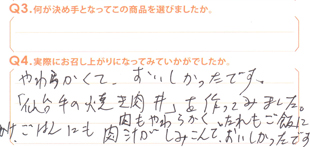 Q3.何が決め手となってこの商品を選びましたか。
Q4.実際にお召し上がりになってみていかがでしたか。
やわらかくて、おいしかったです。
「仙台牛の焼き肉丼」を作ってみました。
肉もやわらかく、たれもご飯に
ごはんにも 肉汁がしみこんで、おいしかったです